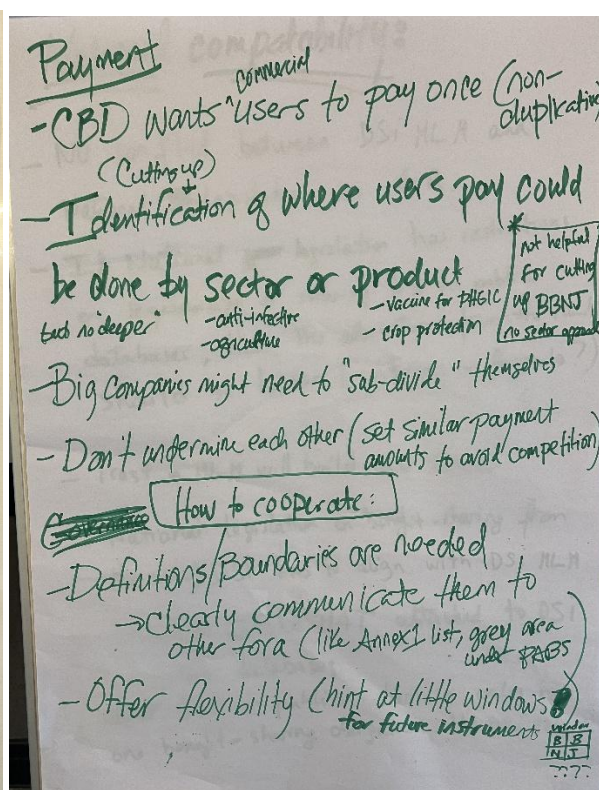 Payment
- CBD wants commercial "users to pay once (non-duplicative)
(Cutting up)
- Identification of where users pay could
be done by sector or product
but no "deeper"
- anti-infective
- agriculture
- vaccine for PHEIC
- crop protection
* not helpful
for cutting
up BBNJ
no sector approach
- Big companies might need to "sub-divide" themselves
- Don't undermine each other (set similar payment
amounts to avoid competition)
Governance
How to cooperate:
- Definitions/Boundaries are needed
→ clearly communicate them to
other fora (like Annex 1 list, grey area
under PABS
- Offer flexibility (hint at little windows
for future instruments
window
B B
N J
????